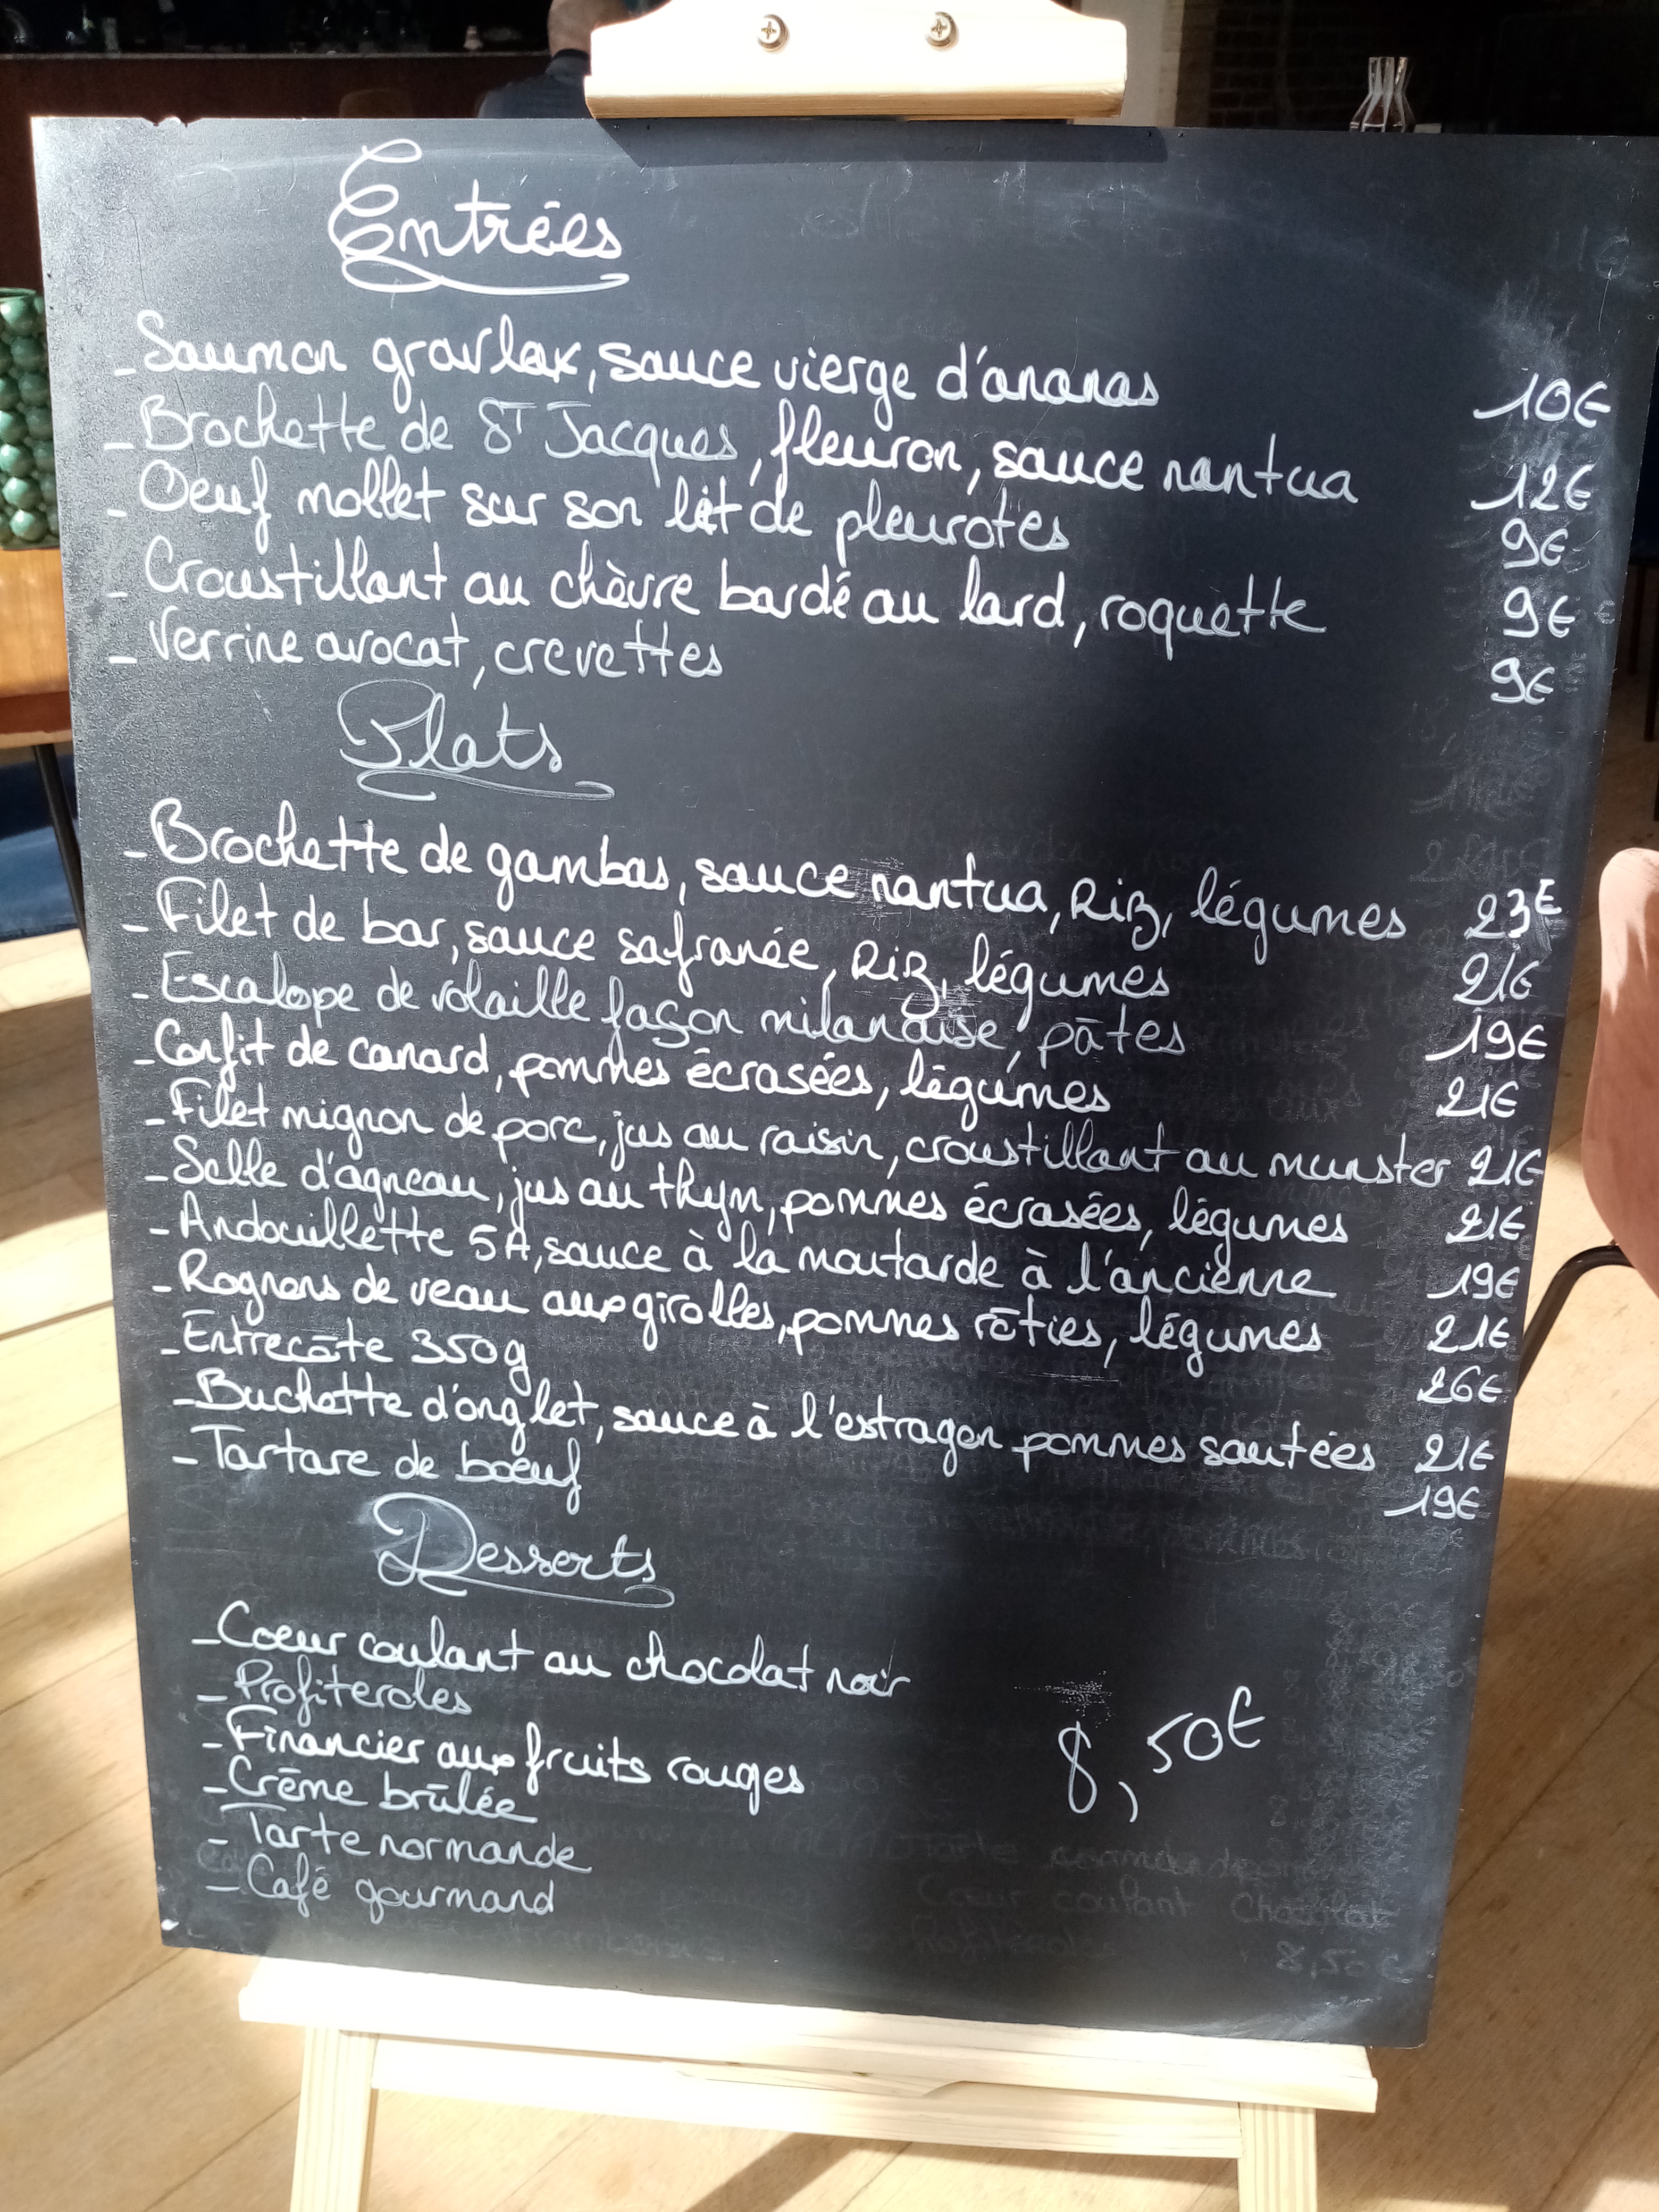 Entrées
- Saumon gravlax, sauce vierge d'ananas 10€
- Brochette de ST Jacques, fleuron, sauce nantua 12€
- Oeuf mollet sur son lit de pleurotes 9€
- Croustillant au chèvre bardé au lard, roquette 9€
- Verrine avocat, crevettes 9€
Plats
- Brochette de gambas, sauce nantua, Riz, légumes 23€
- Filet de bar, sauce safranée, Riz, légumes 21€
- Escalope de volaille façon milanaise, pâtes 19€
- Confit de canard, pommes écrasées, légumes 21€
- Filet mignon de porc, jus au raisin, croustillant au munster 21€
- Selle d'agneau, jus au thym, pommes écrasées, légumes 21€
- Andouillette 5A, sauce à la moutarde à l'ancienne 19€
- Rognons de veau aux girolles, pommes rôties, légumes 21€
- Entrecôte 350g 26€
- Buchette d'onglet, sauce à l'estragon pommes sautées 21€
- Tartare de boeuf 19€
Desserts
- Coeur coulant au chocolat noir
- Profiteroles
- Financier aux fruits rouges
- Crême brûlée
- Tarte normande
- Café gourmand
8,50€
Coeur coulant Chocolat
8,50€